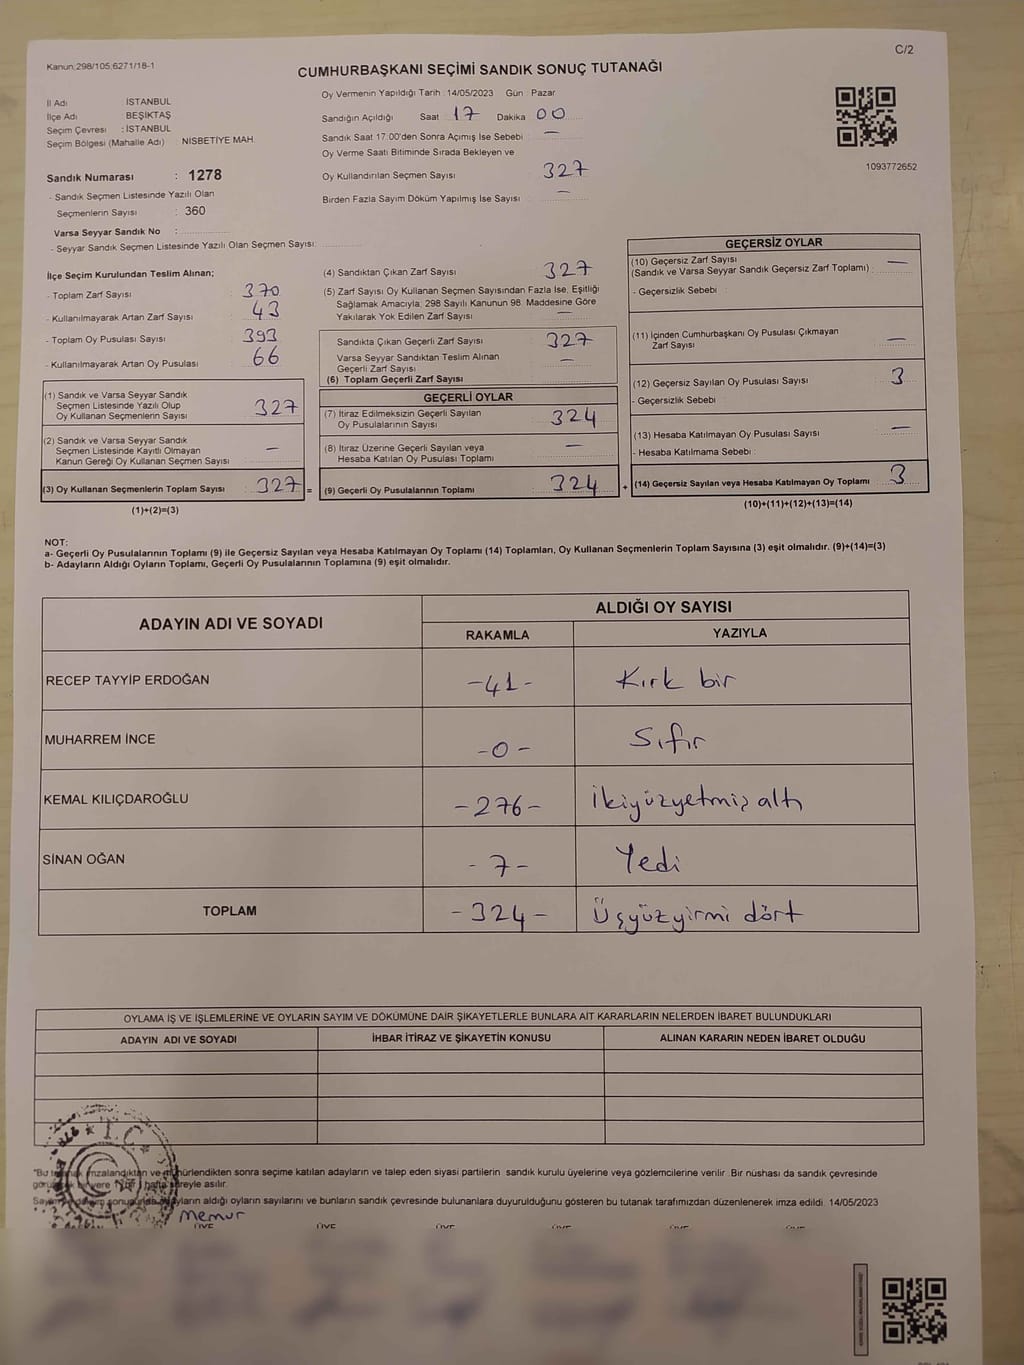 C/2
Kanun:298/105;6271/18-1
CUMHURBAŞKANI SEÇİMİ SANDIK SONUÇ TUTANAĞI
İl Adı : İSTANBUL
İlçe Adı : BEŞİKTAŞ
Seçim Çevresi : İSTANBUL
Seçim Bölgesi (Mahalle Adı) : NISBETİYE MAH.
Sandık Numarası : 1278
- Sandık Seçmen Listesinde Yazılı Olan
Seçmenlerin Sayısı : 360
Varsa Seyyar Sandık No :
- Seyyar Sandık Seçmen Listesinde Yazılı Olan Seçmen Sayısı:
Oy Vermenin Yapıldığı Tarih : 14/05/2023 Gün : Pazar
Sandığın Açıldığı Saat 17 Dakika 00
Sandık Saat 17:00'den Sonra Açımış İse Sebebi : —
Oy Verme Saati Bitiminde Sırada Bekleyen ve
Oy Kullandırılan Seçmen Sayısı 327
Birden Fazla Sayım Döküm Yapılmış İse Sayısı —
1093772652
İlçe Seçim Kurulundan Teslim Alınan;
- Toplam Zarf Sayısı 370
- Kullanılmayarak Artan Zarf Sayısı 43
- Toplam Oy Pusulası Sayısı 393
- Kullanılmayarak Artan Oy Pusulası 66
(1) Sandık ve Varsa Seyyar Sandık
Seçmen Listesinde Yazılı Olup
Oy Kullanan Seçmenlerin Sayısı 327
(2) Sandık ve Varsa Seyyar Sandık
Seçmen Listesinde Kayıtlı Olmayan
Kanun Gereği Oy Kullanan Seçmen Sayısı —
(3) Oy Kullanan Seçmenlerin Toplam Sayısı 327 =
(1)+(2)=(3)
(4) Sandıktan Çıkan Zarf Sayısı 327
(5) Zarf Sayısı Oy Kullanan Seçmen Sayısından Fazla İse, Eşitliği
Sağlamak Amacıyla; 298 Sayılı Kanunun 98. Maddesine Göre
Yakılarak Yok Edilen Zarf Sayısı —
Sandıkta Çıkan Geçerli Zarf Sayısı 327
Varsa Seyyar Sandıktan Teslim Alınan
Geçerli Zarf Sayısı —
(6) Toplam Geçerli Zarf Sayısı
GEÇERLİ OYLAR
(7) İtiraz Edilmeksizin Geçerli Sayılan
Oy Pusulalarının Sayısı 324
(8) İtiraz Üzerine Geçerli Sayılan veya
Hesaba Katılan Oy Pusulası Toplamı —
(9) Geçerli Oy Pusulalarının Toplamı 324 +
GEÇERSİZ OYLAR
(10) Geçersiz Zarf Sayısı
(Sandık ve Varsa Seyyar Sandık Geçersiz Zarf Toplamı) : —
- Geçersizlik Sebebi :
(11) İçinden Cumhurbaşkanı Oy Pusulası Çıkmayan
Zarf Sayısı —
(12) Geçersiz Sayılan Oy Pusulası Sayısı 3
- Geçersizlik Sebebi
(13) Hesaba Katılmayan Oy Pusulası Sayısı —
- Hesaba Katılmama Sebebi :
(14) Geçersiz Sayılan veya Hesaba Katılmayan Oy Toplamı 3
(10)+(11)+(12)+(13)=(14)
NOT:
a- Geçerli Oy Pusulalarının Toplamı (9) ile Geçersiz Sayılan veya Hesaba Katılmayan Oy Toplamı (14) Toplamları, Oy Kullanan Seçmenlerin Toplam Sayısına (3) eşit olmalıdır. (9)+(14)=(3)
b- Adayların Aldığı Oyların Toplamı, Geçerli Oy Pusulalarının Toplamına (9) eşit olmalıdır.
ADAYIN ADI VE SOYADI
ALDIĞI OY SAYISI
RAKAMLA YAZIYLA
RECEP TAYYİP ERDOĞAN -41- Kırk bir
MUHARREM İNCE -0- Sıfır
KEMAL KILIÇDAROĞLU -276- İkiyüzyetmiş altı
SİNAN OĞAN -7- Yedi
TOPLAM -324- Üçyüzyirmi dört
OYLAMA İŞ VE İŞLEMLERİNE VE OYLARIN SAYIM VE DÖKÜMÜNE DAİR ŞİKAYETLERLE BUNLARA AİT KARARLARIN NELERDEN İBARET BULUNDUKLARI
ADAYIN ADI VE SOYADI İHBAR İTİRAZ VE ŞİKAYETİN KONUSU ALINAN KARARIN NEDEN İBARET OLDUĞU
T.C.
imzalandıktan ve mühürlendikten sonra seçime katılan adayların ve talep eden siyasi partilerin sandık kurulu üyelerine veya gözlemcilerine verilir. Bir nüshası da sandık çevresinde
süreyle asılır.
adayların aldığı oyların sayılarını ve bunların sandık çevresinde bulunanlara duyurulduğunu gösteren bu tutanak tarafımızdan düzenlenerek imza edildi. 14/05/2023
Memur
ÜYE ÜYE ÜYE ÜYE ÜYE ÜYE